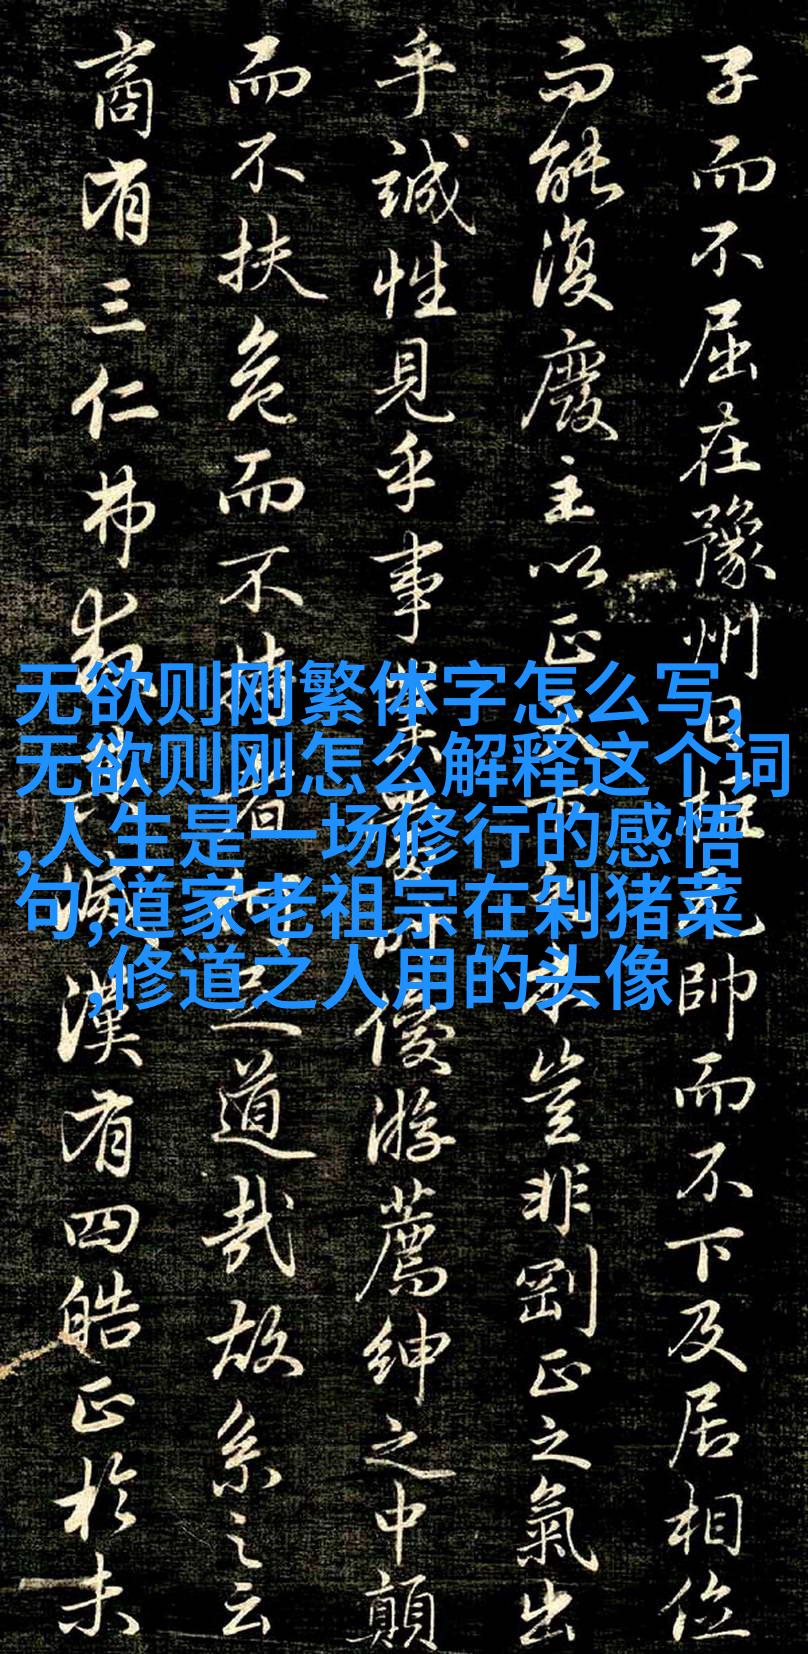 子而不屈在豫州日拒元帥而不下及居相位
而能復廢主以正天下之本豈非剛正之氣出
乎誠性見乎事業當時優游薦紳之中顛
而不扶危而不持者亦何足道哉故系之云
商有三仁弗救其滅漢有四皓正於未
无欲则刚繁体字怎么写,
无欲则刚怎么解释这个词
,人生是一场修行的感悟
句,道家老祖宗在剁猪菜
,修道之人用的头像